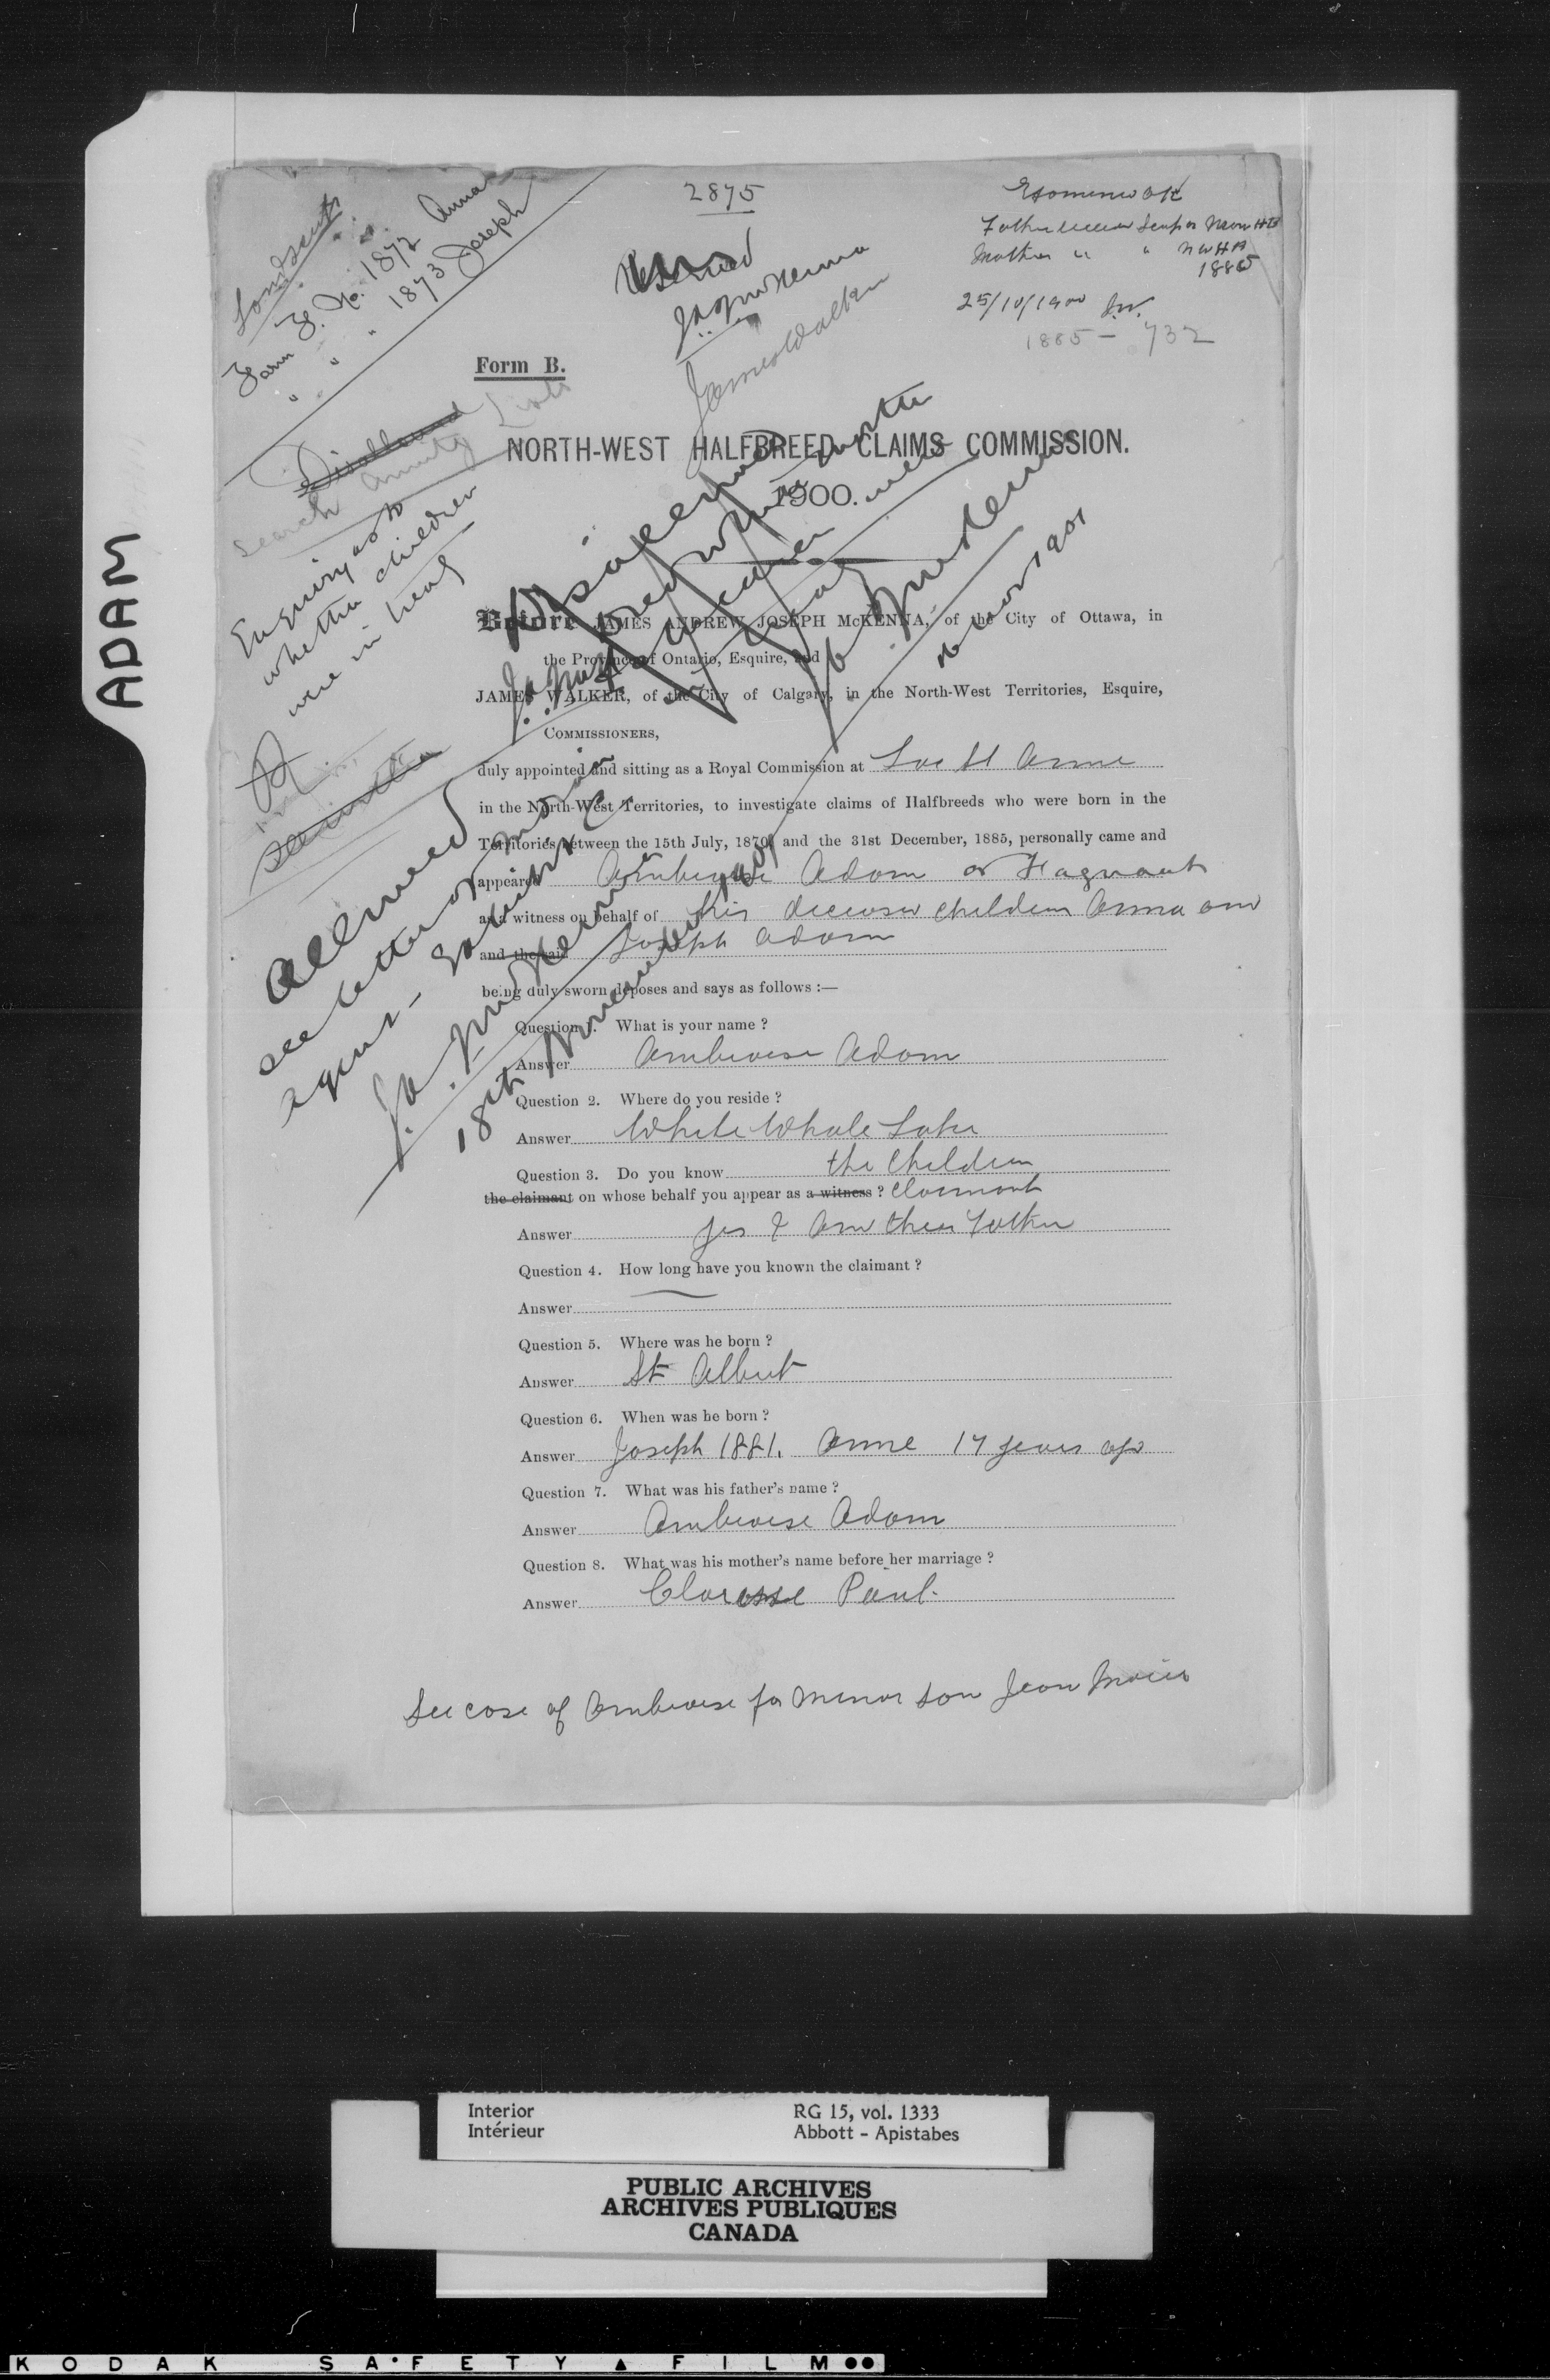 ADAM
2875
Land Scrip
Form F. No. 1872 Anna
" " " 1873 Joseph
Reserved
J.A.J. McKenna
James Walker
Examined OK
Father Scrip as Man HB
Mother " " N W H B
1885
25/10/1900 J.W.
1885 - 732
Form B.
Disallowed
Search Annuity Lists
Enquiry as to
whether children
were in treaty
NORTH-WEST HALFBREED CLAIMS COMMISSION.
1900.
Disallowed
J.A.J. McKenna
16 Nov 1901
Before JAMES ANDREW JOSEPH McKENNA, of the City of Ottawa, in
the Province of Ontario, Esquire, and
JAMES WALKER, of the City of Calgary, in the North-West Territories, Esquire,
COMMISSIONERS,
duly appointed and sitting as a Royal Commission at Lac St Anne
in the North-West Territories, to investigate claims of Halfbreeds who were born in the
Territories between the 15th July, 1870, and the 31st December, 1885, personally came and
appeared Ambroise Adam or Hagnant
as a witness on behalf of his deceased children Anna and
and the said Joseph Adam
being duly sworn deposes and says as follows :—
Allowed
see letter of
Agent
J.A.J. McKenna
18th November 1901
Question 1. What is your name ?
Answer Ambroise Adam
Question 2. Where do you reside ?
Answer White Whale Lake
Question 3. Do you know the children
the claimant on whose behalf you appear as a witness ? Claimant
Answer yes I am their Father
Question 4. How long have you known the claimant ?
Answer
Question 5. Where was he born ?
Answer St Albert
Question 6. When was he born ?
Answer Joseph 1881. Anne 17 years ago
Question 7. What was his father's name ?
Answer Ambroise Adam
Question 8. What was his mother's name before her marriage ?
Answer Clarisse Paul.
See case of Ambroise for minor son Jean Marie
Interior RG 15, vol. 1333
Intérieur Abbott - Apistabes
PUBLIC ARCHIVES
ARCHIVES PUBLIQUES
CANADA
KODAK SAFETY FILM